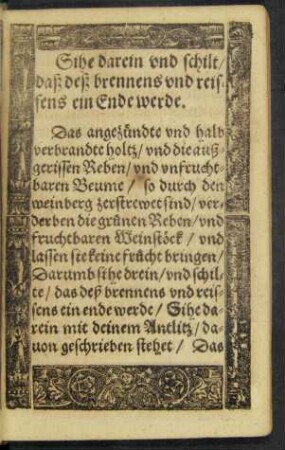 Sihe darein vnd schilt/
daß deß brennens vnd reis-
sens ein Ende werde.
Das angezündte vnd halb
verbrandte holtz/ vnd die auß-
gerissen Reben/ vnd vnfrucht-
baren Beume/ so durch den
weinberg zerstrewet sind/ ver-
derben die grünen Reben/ vnd
fruchtbaren Weinstöck/ vnd
lassen sie keine frücht bringen/
Darumb sihe drein/ vnd schil-
te/ das deß brennens vnd reis-
sens ein ende werde/ Sihe da-
rein mit deinem Antlitz/ da-
uon geschrieben stehet/ Das